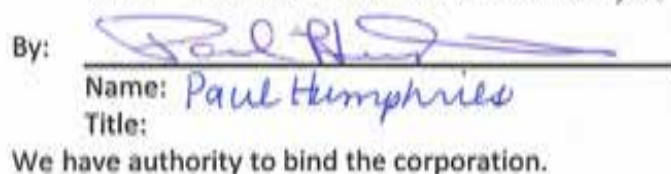 By: Paul Hum
Name: Paul Humphries
Title:
We have authority to bind the corporation.